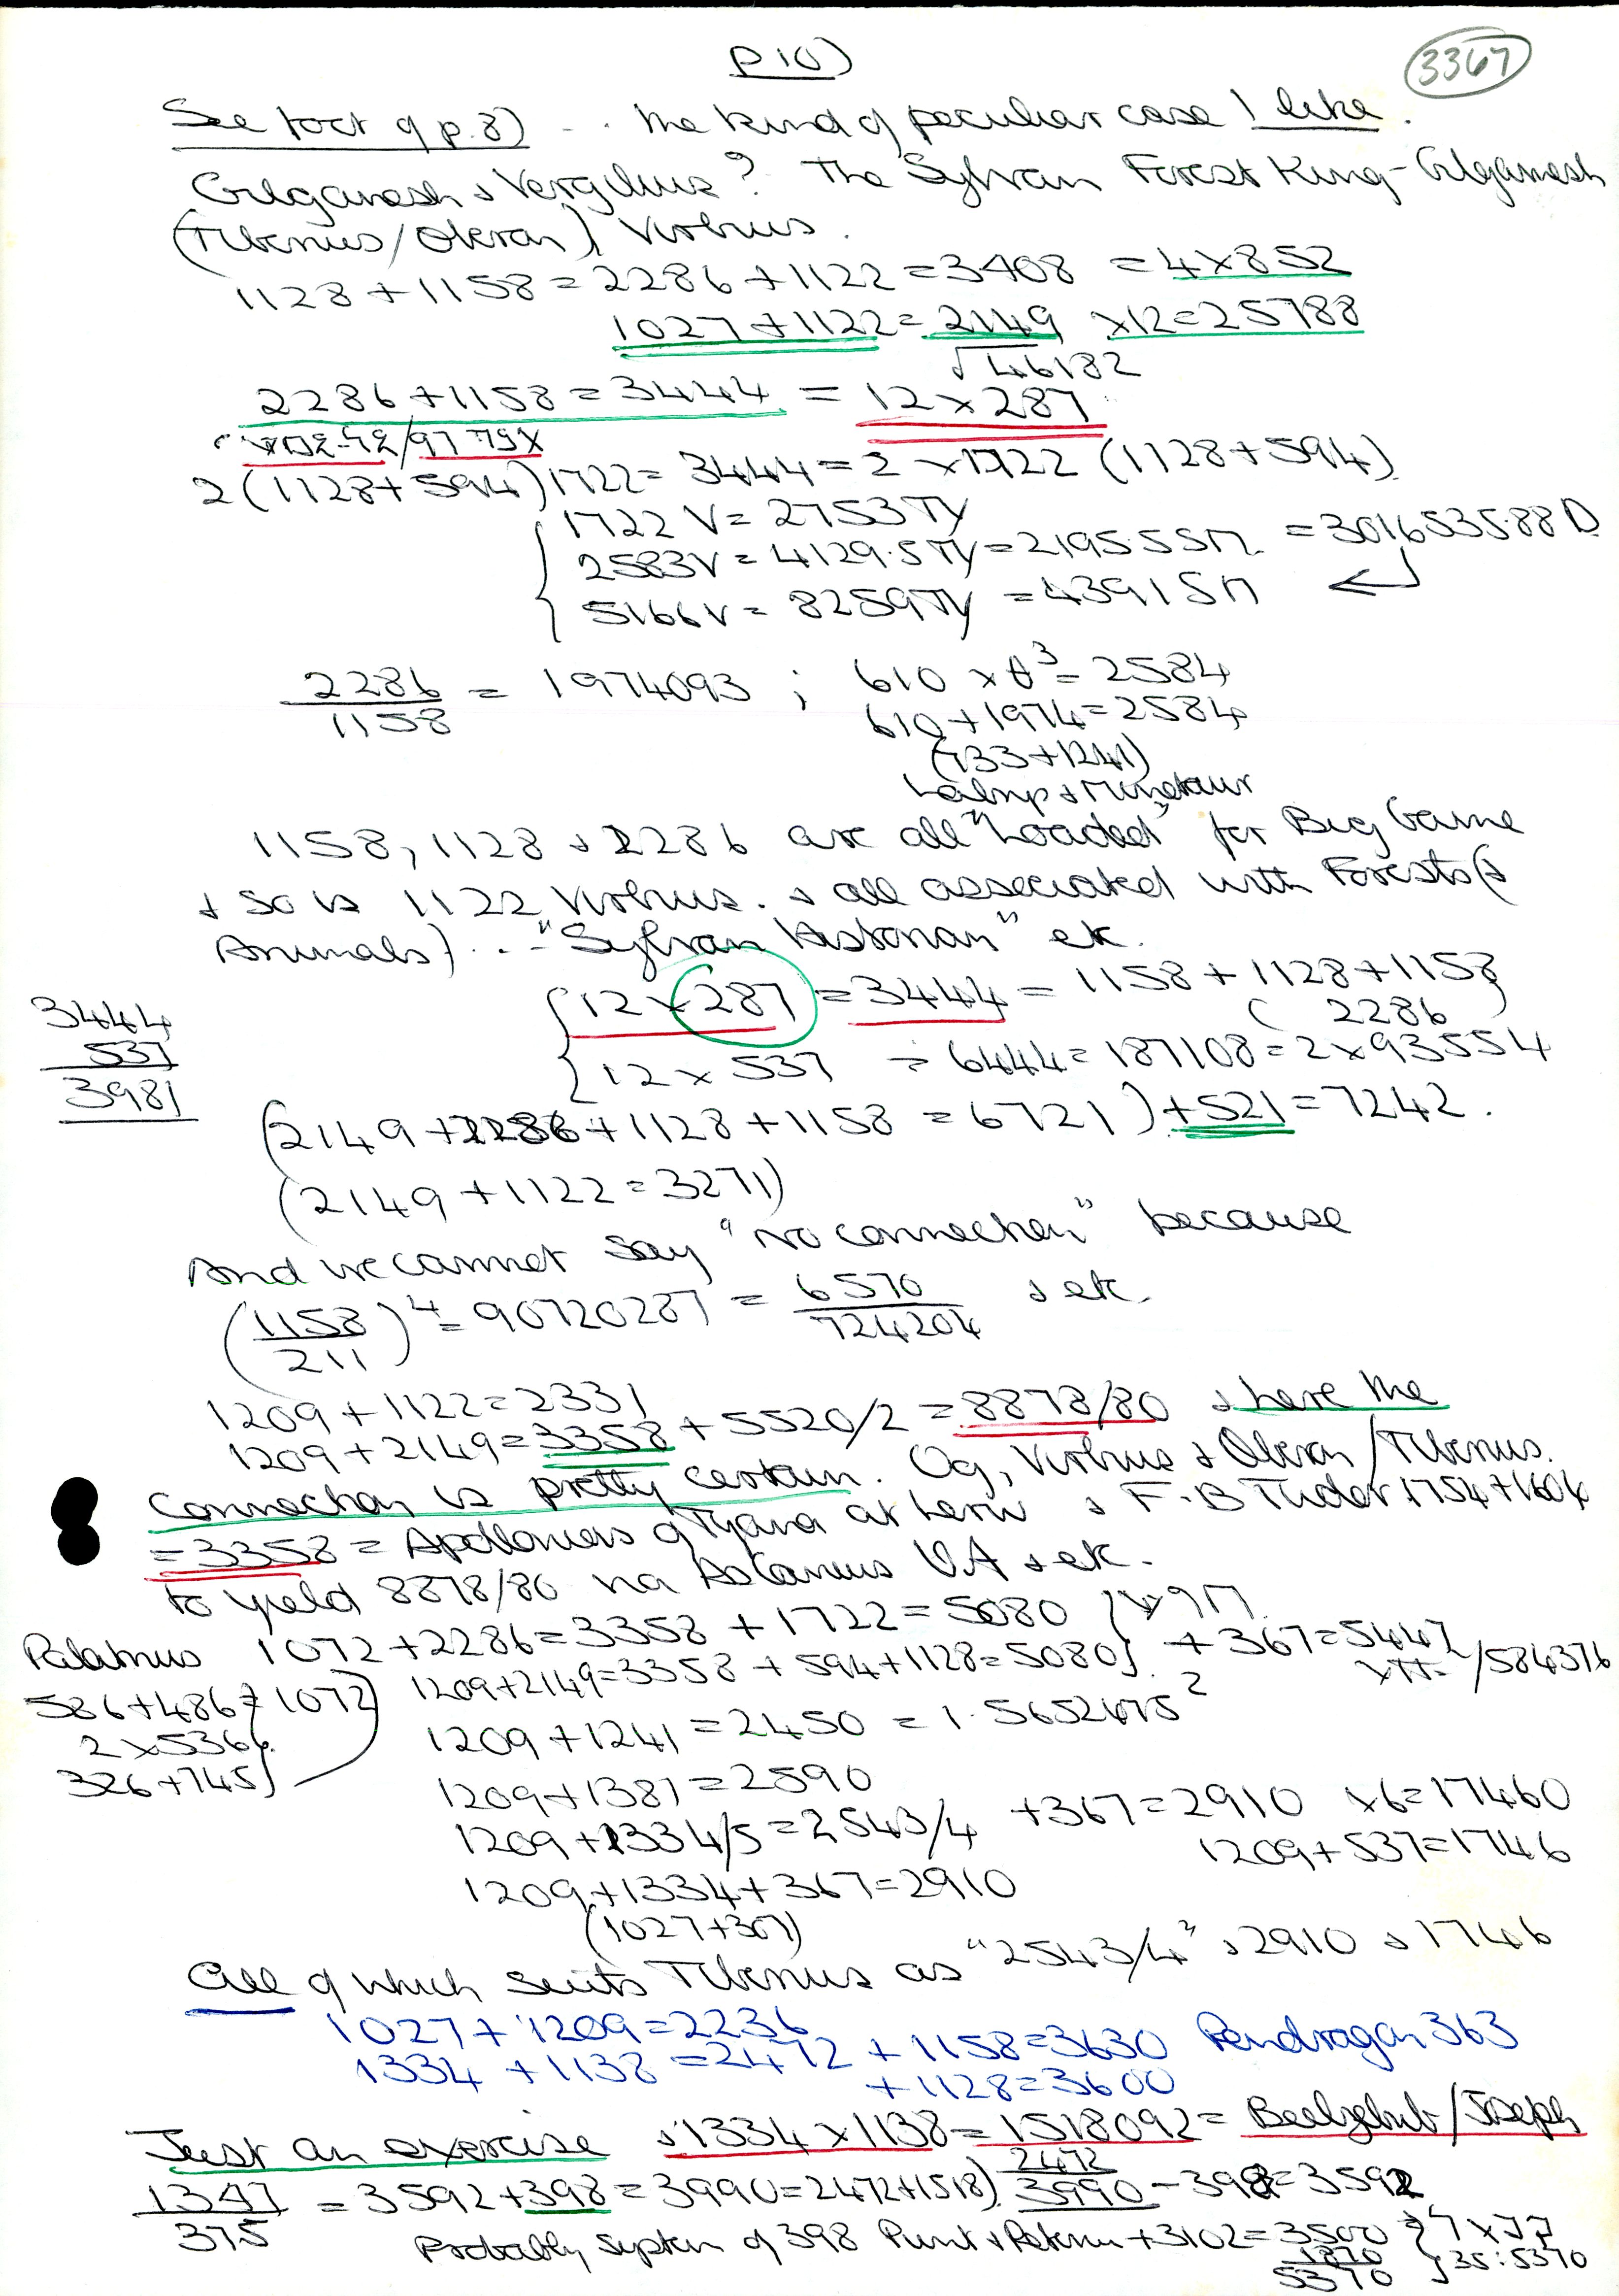 p 10)
3367
See foot of p. 8) - . . the kind of peculiar case I like.
Gilgamesh & Vergilius? The Sylvan Forest King - Gilgamesh
(Tiberius/Oberon) Virbius.
1128 + 1158 = 2286 + 1122 = 3408 = 4 x 852
1027 + 1122 = 2149 x 12 = 25788
√46182
2286 + 1158 = 3444 = 12 x 287
2(1128 + 594) 1722 = 3444 = 2 x 1722 (1128 + 594)
1722 V = 2753 Ty
2583 V = 4129.5 Ty = 2195.5 Sn. = 3016535.88 D
5166 V = 8259 Ty = 4391 Sn
2286/1158 = 1974093 ; 610 x θ³ = 2584
610 + 1974 = 2584
(733 + 1241)
Labyr & Minotaur
1158, 1128 & 2286 are all "Loaded" for Big Game
& so is 1122 Virbius. & all associated with Forests (&
Animals) . . - "Sylvan Historian" etc.
{12 x 287 = 3444 = 1158 + 1128 + 1158
( 2286 )
{12 x 537 = 6444 = 187108 = 2 x 93554
3444
537
3981
(2149 + 2286 + 1128 + 1158 = 6721) + 521 = 7242.
(2149 + 1122 = 3271)
And we cannot say "No connection" because
(1158/211)⁴ = 90720287 = 6570/724204 & etc.
1209 + 1122 = 2331
1209 + 2149 = 3358 + 5520/2 = 8878/80 & here the
connection is pretty certain. Og, Virbius & Oberon/Tiberius.
& F. B Tudor. 1754 + 1604
= 3358 = Apollonius of Tyana
to yield 8878/80 via Ascanius VA & etc.
1072 + 2286 = 3358 + 1722 = 5080
1209 + 2149 = 3358 + 594 + 1128 = 5080}. + 367 = 5447
xπ = /584376
Palatinus
586 + 486 = 1072
2 x 536
326 + 745
1209 + 1241 = 2450 = 1.5652475²
1209 + 1381 = 2590
1209 + 1334/5 = 2543/4 + 367 = 2910 x 6 = 17460
1209 + 537 = 1746
1209 + 1334 + 367 = 2910
(1027 + 307)
All of which suits Tiberius as "2543/4" & 2910 & 1746
1027 + 1209 = 2236
1334 + 1138 = 2472 + 1158 = 3630 Pendragon 363
+ 1128 = 3600
Just an exercise & 1334 x 1138 = 1518092 = Beelzebub/Joseph
1347/375 = 3592 + 398 = 3990 = 2472 + 1518) 2472
3990 - 398 = 3592
Probably system of 398 Punt & + 3102 = 3500 } 7 x 77
1870
5370 } 35 : 5370